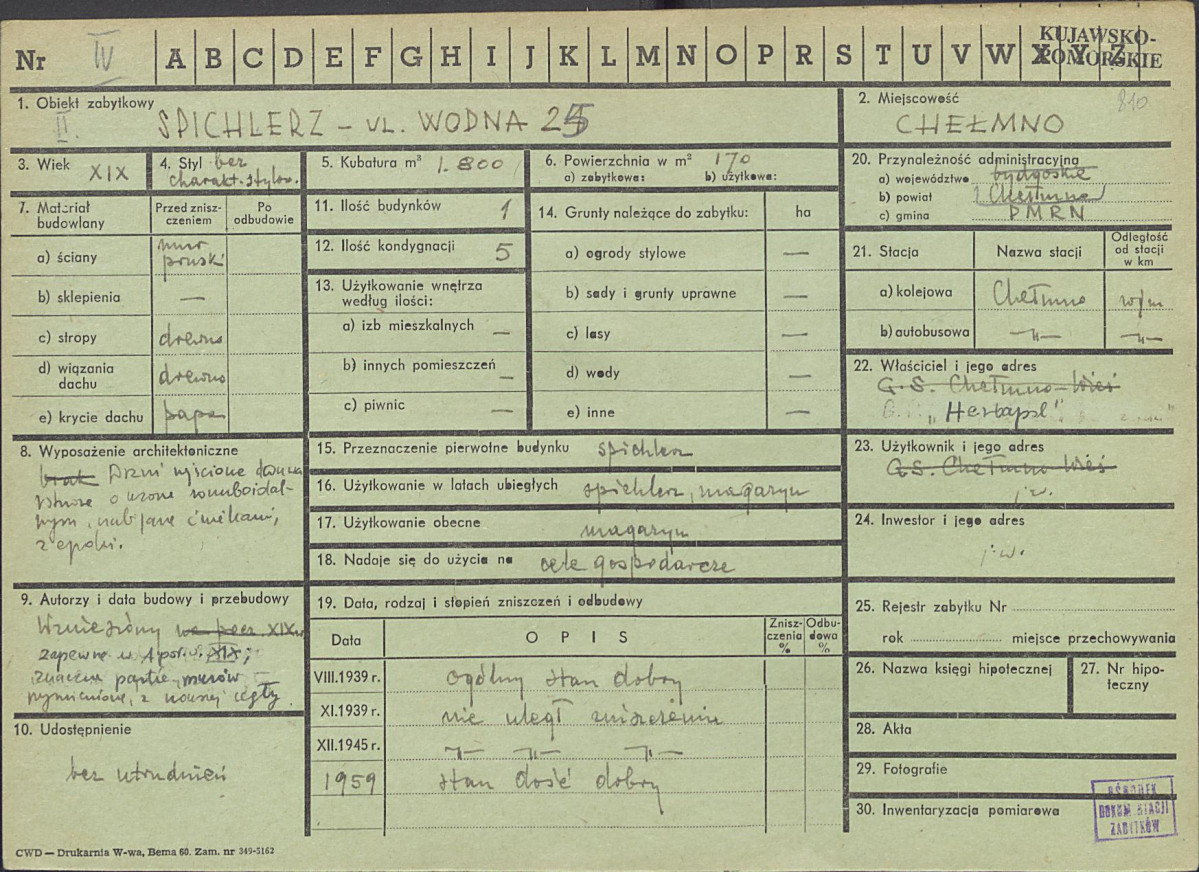 Nr IV A B C D E F G H I J K L M N O P R S T U V W X Y Z
KUJAWSKO-
POMORSKIE
1. Obiekt zabytkowy
II. SPICHLERZ – UL. WODNA
2. Miejscowość 810
CHEŁMNO
3. Wiek XIX
4. Styl bez
charakt. stylow.
5. Kubatura m³ 1.800
6. Powierzchnia w m² 170
a) zabytkowa: b) użytkowa:
7. Materiał
budowlany
Przed znisz-
czeniem
Po
odbudowie
a) ściany mur
pruski
b) sklepienia —
c) stropy drewno
d) wiązania
dachu drewno
e) krycie dachu papa
8. Wyposażenie architektoniczne
brak Drzwi wejściowe
o wzorze romboidal-
nym, nabijane ćwiekami,
z epoki.
9. Autorzy i data budowy i przebudowy
Wzniesiony na pocz. XIX w
zapewne w 1 poł. w. XIX;
znaczne partie murów
wymienione, z nowej cegły
10. Udostępnienie
bez utrudnień
11. Ilość budynków 1
12. Ilość kondygnacji 5
13. Użytkowanie wnętrza
według ilości:
a) izb mieszkalnych —
b) innych pomieszczeń —
c) piwnic —
14. Grunty należące do zabytku: ha
a) ogrody stylowe —
b) sady i grunty uprawne —
c) lasy —
d) wody —
e) inne —
15. Przeznaczenie pierwotne budynku spichlerz
16. Użytkowanie w latach ubiegłych spichlerz, magazyn
17. Użytkowanie obecne magazyn
18. Nadaje się do użycia na cele gospodarcze
19. Data, rodzaj i stopień zniszczeń i odbudowy
Data OPIS Znisz-
czenia
% Odbu-
dowa
%
VIII.1939 r. ogólny stan dobry
XI.1939 r. nie uległ zniszczeniu
XII.1945 r. —„— —„— —„—
1959 stan dość dobry
20. Przynależność administracyjna
a) województwo bydgoskie
b) powiat Chełmno
c) gmina PMRN
21. Stacja Nazwa stacji Odległość
od stacji
w km
a) kolejowa Chełmno
b) autobusowa —„— —„—
22. Właściciel i jego adres
G.S. Chełmno-Wieś
„Herbapol"
23. Użytkownik i jego adres
G.S. Chełmno-Wieś
j.w.
24. Inwestor i jego adres
j.w.
25. Rejestr zabytku Nr
rok miejsce przechowywania
26. Nazwa księgi hipotecznej
27. Nr hipo-
teczny
28. Akta
29. Fotografie
30. Inwentaryzacja pomiarowa
OŚRODEK
DOKUMENTACJI
ZABYTKÓW
CWD — Drukarnia W-wa, Bema 60. Zam. nr 349-5162